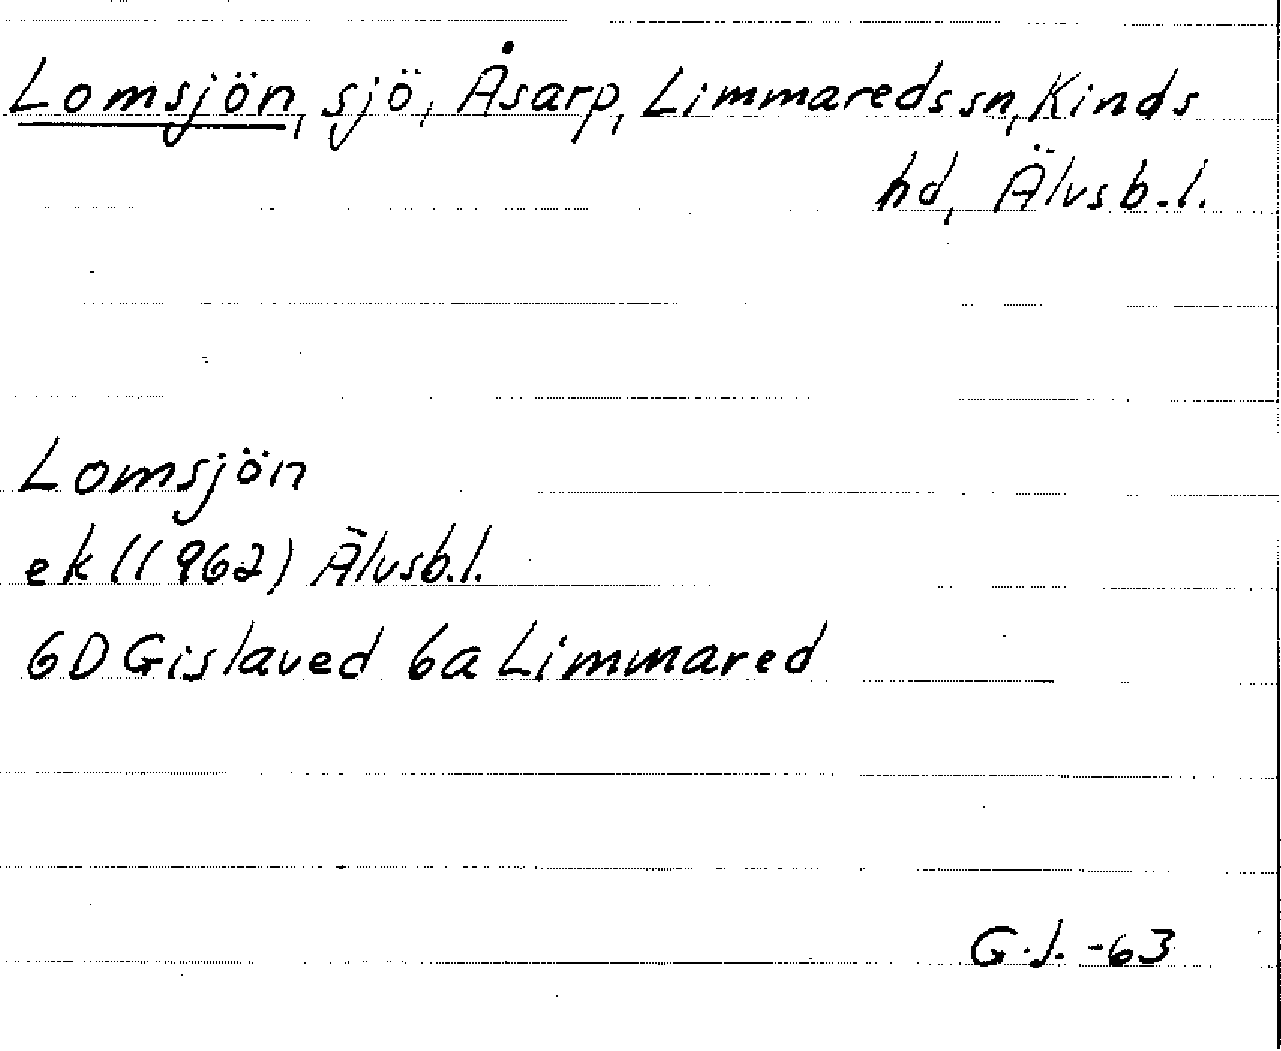 Lomsjön, sjö, Åsarp, Limmareds sn, Kinds
hd, Älvsb.l.
Lomsjön
ek (1962) Älvsb.l.
6D Gislaved 6a Limmared
G.J. -63